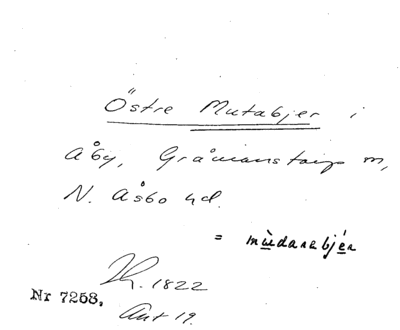 Östre Mutabjer i
Åby, Gråmanstorps m,
N. Åsbo hd.
= mùdarabjér
1822
Nr 7258,
Ant 19.